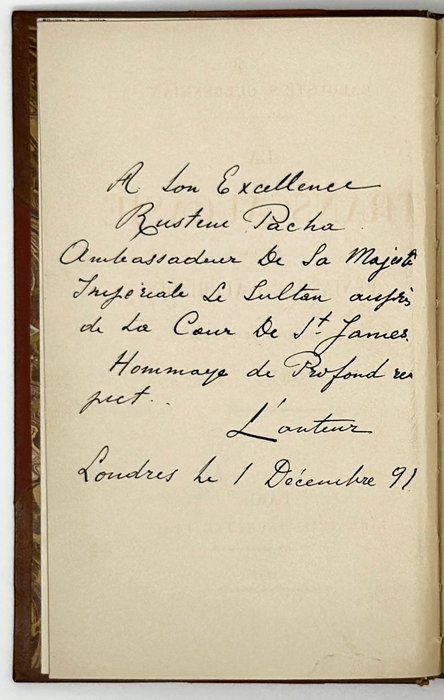 A Son Excellence
Rustem Pacha
Ambassadeur De Sa Majesté
Impériale Le Sultan auprès
de La Cour De St James.
Hommage de Profond res
pect..
L'auteur
Londres le 1 Décembre 91